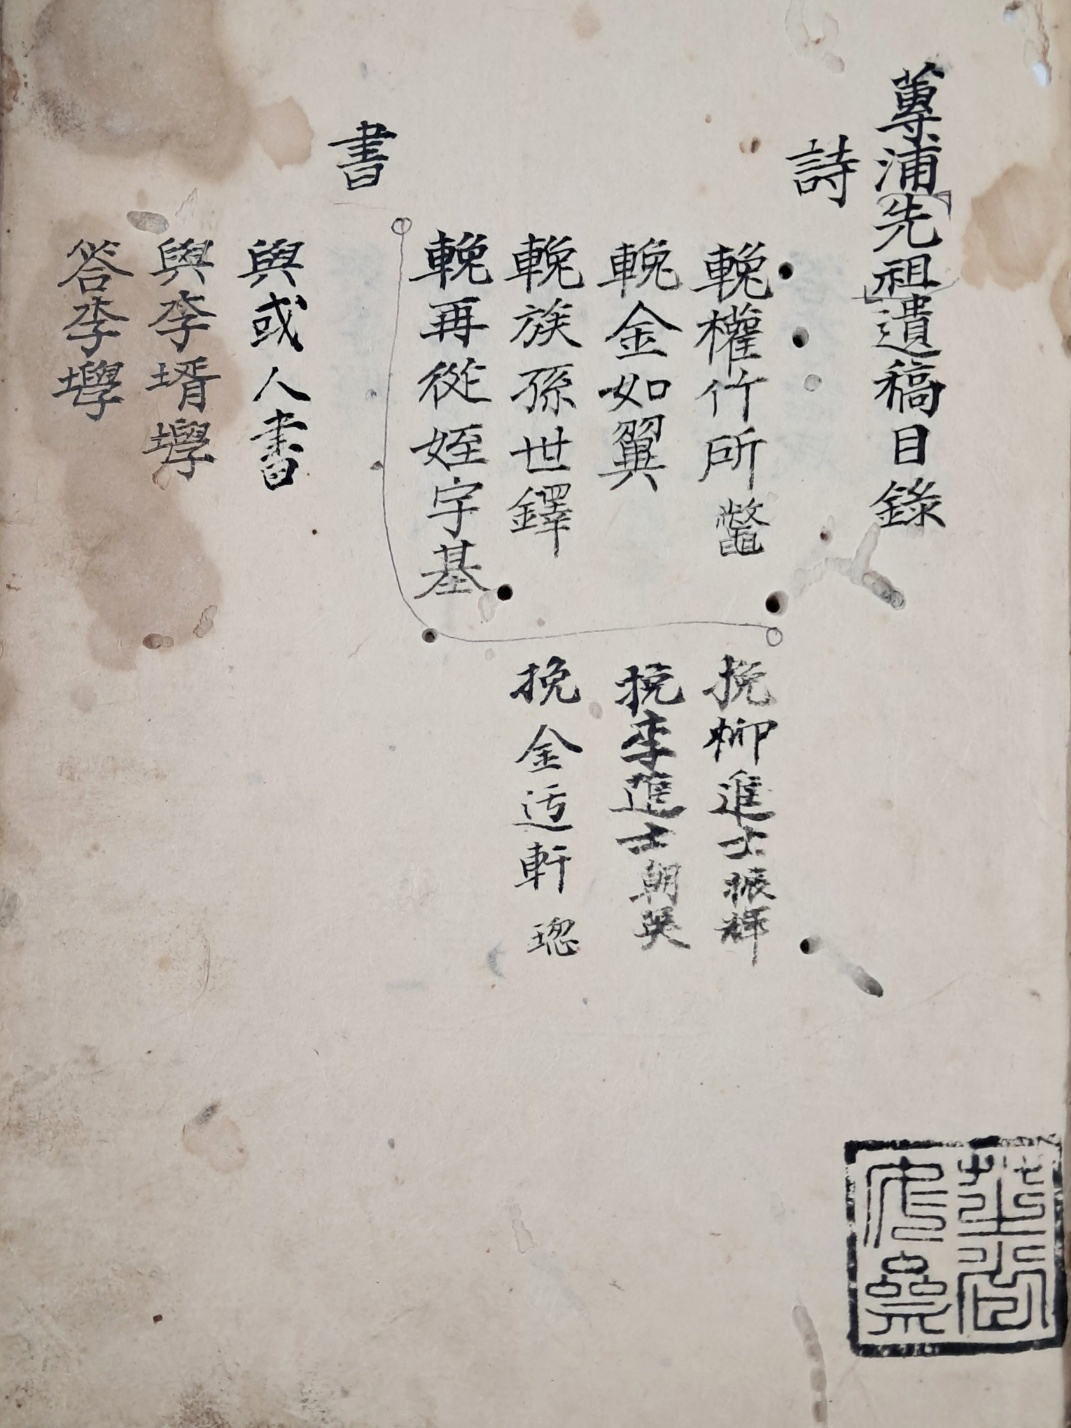 蓴浦先祖遺稿目錄
詩
輓權竹所鼈
輓金如翼
輓族孫世鐸
輓再從姪宇基
挽柳進士振輝
挽李進士朝英
挽金迃軒璁
書
與或人書
與李壻㙾
答李㙾